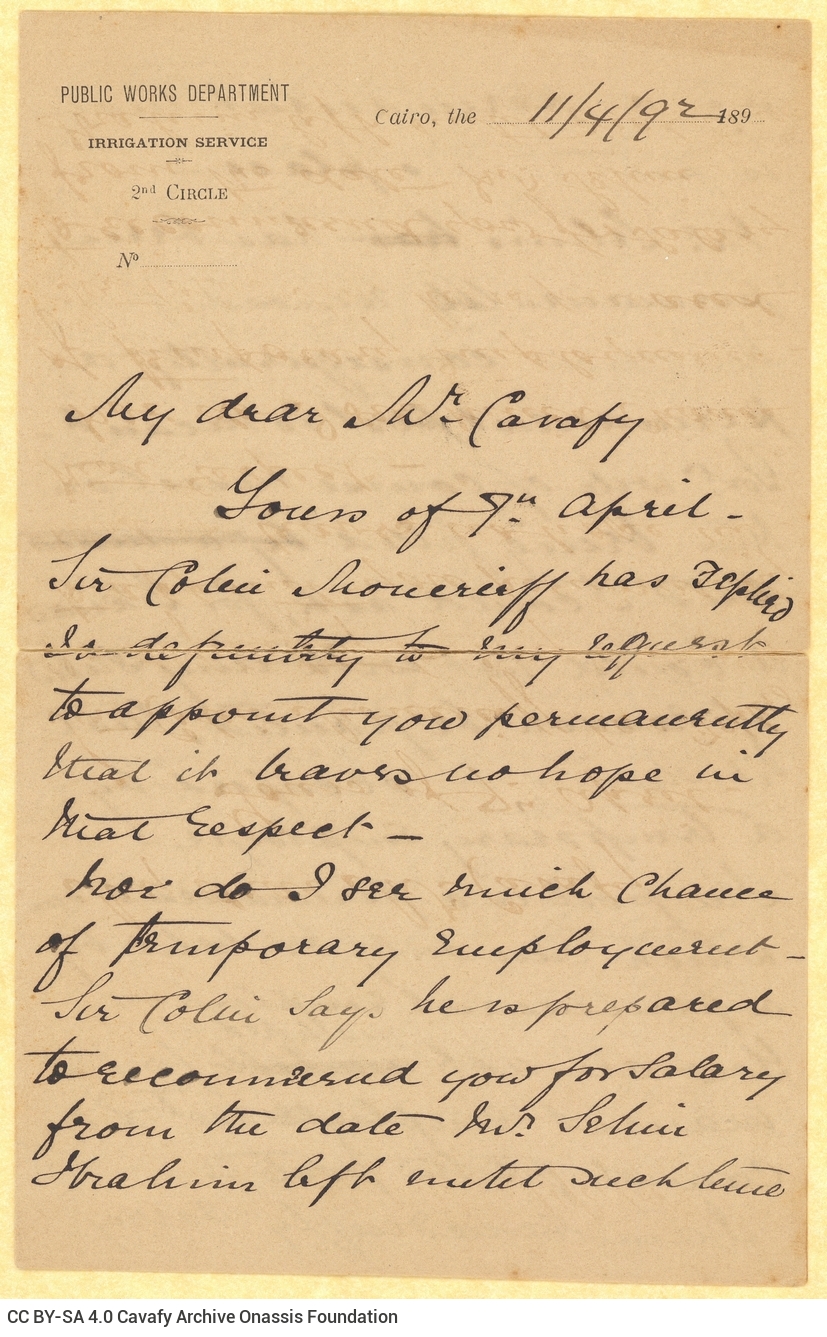 PUBLIC WORKS DEPARTMENT
IRRIGATION SERVICE
2nd CIRCLE
No
Cairo, the 11/4/92 189
My dear Mr. Cavafy
Yours of 9th April -
Sir Colin Moncrieff has replied
so definitely to my request
to appoint you permanently
that it leaves no hope in
that respect -
Nor do I see much chance
of temporary employment -
Sir Colin says he is prepared
to recommend you for salary
from the date Mr. Selim
Ibrahim left until such time
CC BY-SA 4.0 Cavafy Archive Onassis Foundation